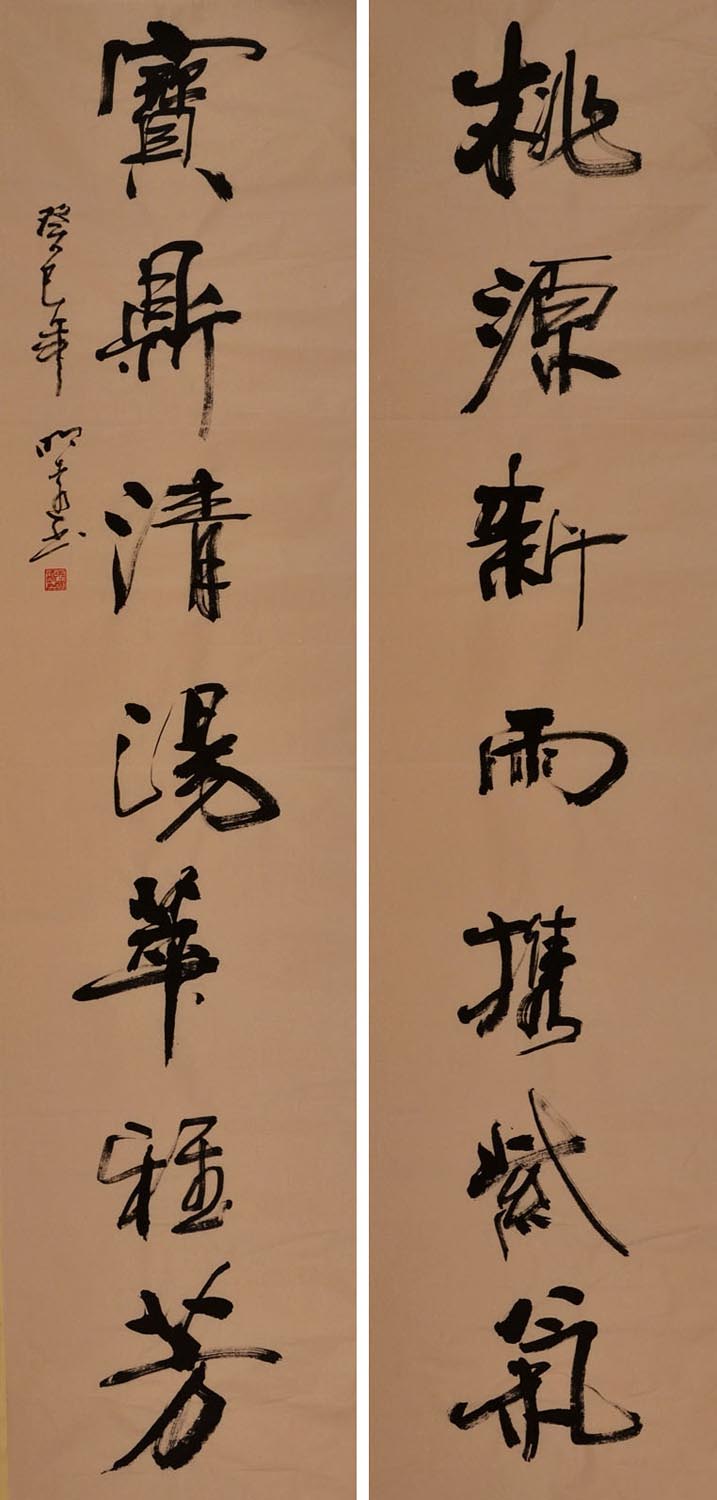 桃源新雨携紫氣
寶鼎清湯華種芳
癸巳年